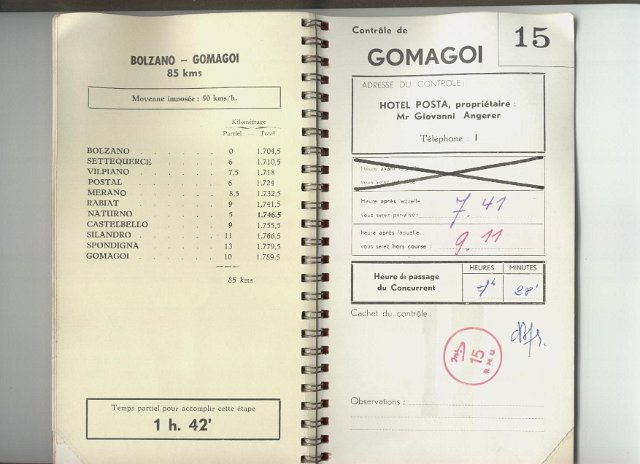 BOLZANO – GOMAGOI
85 kms
Moyenne imposée : 50 kms/h.
Kilométrage
Partiel — Total
BOLZANO . . . . . 0 1.704,5
SETTEQUERCE . . . . . 6 1.710,5
VILPIANO . . . . . 7,5 1.718
POSTAL . . . . . 6 1.724
MERANO . . . . . 8,5 1.732,5
RABIAT . . . . . 9 1.741,5
NATURNO . . . . . 5 1.746,5
CASTELBELLO . . . . . 9 1.755,5
SILANDRO . . . . . 11 1.766,5
SPONDIGNA . . . . . 13 1.779,5
GOMAGOI . . . . . 10 1.789,5
85 kms
Temps partiel pour accomplir cette étape
1 h. 42'
Contrôle de
GOMAGOI
15
ADRESSE DU CONTROLE :
HOTEL POSTA, propriétaire :
Mr Giovanni Angerer
Téléphone : 1
Heure avant laquelle
vous serez
Heure après laquelle
vous serez pénalisé 7.41
Heure après laquelle
vous serez hors course : 9.11
Heure de passage
du Concurrent
HEURES MINUTES
7h 28'
Cachet du contrôle :
15
Observations :